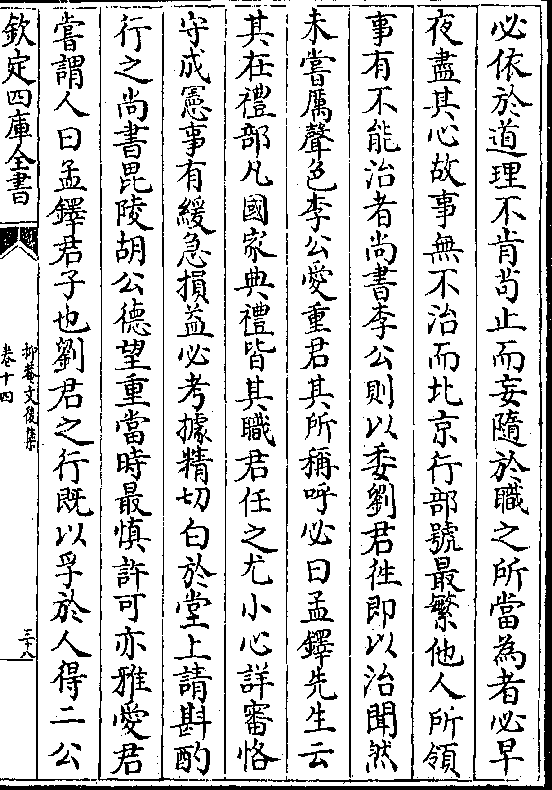 必依於道理不肯茍止而妄隨於職之所當為者必早
夜盡其心故事無不治而北京行部號最繁他人所領
事有不能治者尚書李公則以委劉君徃即以治聞然
未嘗厲聲色李公愛重君其所稱呼必曰孟鐸先生云
其在禮部凡國家典禮皆其職君任之尤小心詳審恪
守成憲事有緩急損益必考據精切白於堂上請斟酌
行之尚書毘陵胡公德望重當時最慎許可亦雅愛君
嘗謂人曰孟鐸君子也劉君之行既以孚於人得二公
欽定四庫全書
抑菴文後集
卷十四
三十八